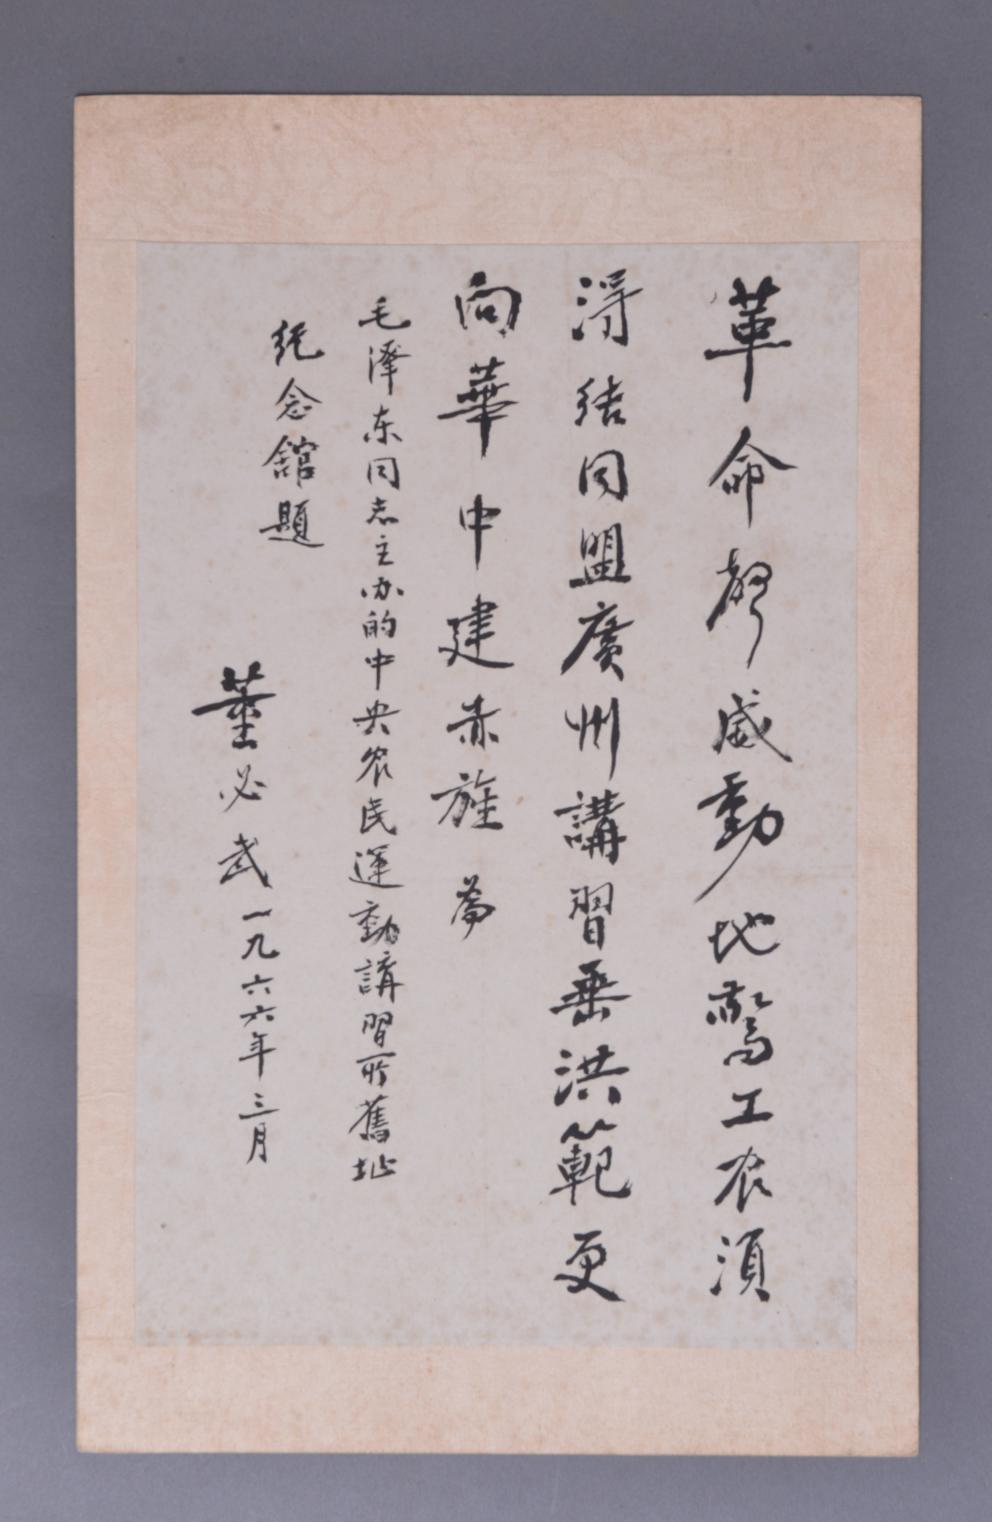 革命聲威動地驚工农須
得結同盟廣州講習垂洪範更
向華中建赤旌 為
毛澤东同志主办的中央农民運動講習所舊址
纪念舘題
董必武一九六六年三月